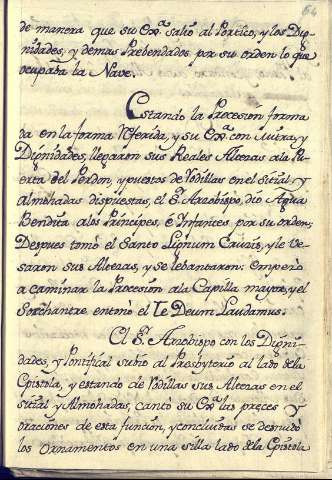 64
de manera que su Exª. salio al Portico, y los Dig-
nidades, y demas Prebendados por su orden lo que
ocupaba la Nave.
Estando la Procesion forma
da en la forma referida, y su Exª. con Mitra, y
Dignidades, llegaron sus Reales Altezas a la Pu-
erta del Perdon, y puestos de rodillas en el sitial y
almohadas dispuestas, el Sr. Arzobispo, dio Agua
Bendita a los Principes, e Infantes por su orden;
Despues tomó el Santo Lignum Crucis, y le be-
saron sus Altezas, y se lebantaron: empezo
a caminar la Procesion a la Capilla mayor, y el
Sochantre entonó el Te Deum Laudamus.
El Sr. Arzobispo con los Digni-
dades, y Pontifical subio al Presbyterio al lado de la
Epistola, y estando de rodillas sus Altezas en el
sitial, y Almohadas, cantó su Exª. las preces y
oraciones de esta función, y concluidas se desnudó
los Ornamentos en una silla lado de la Epistola